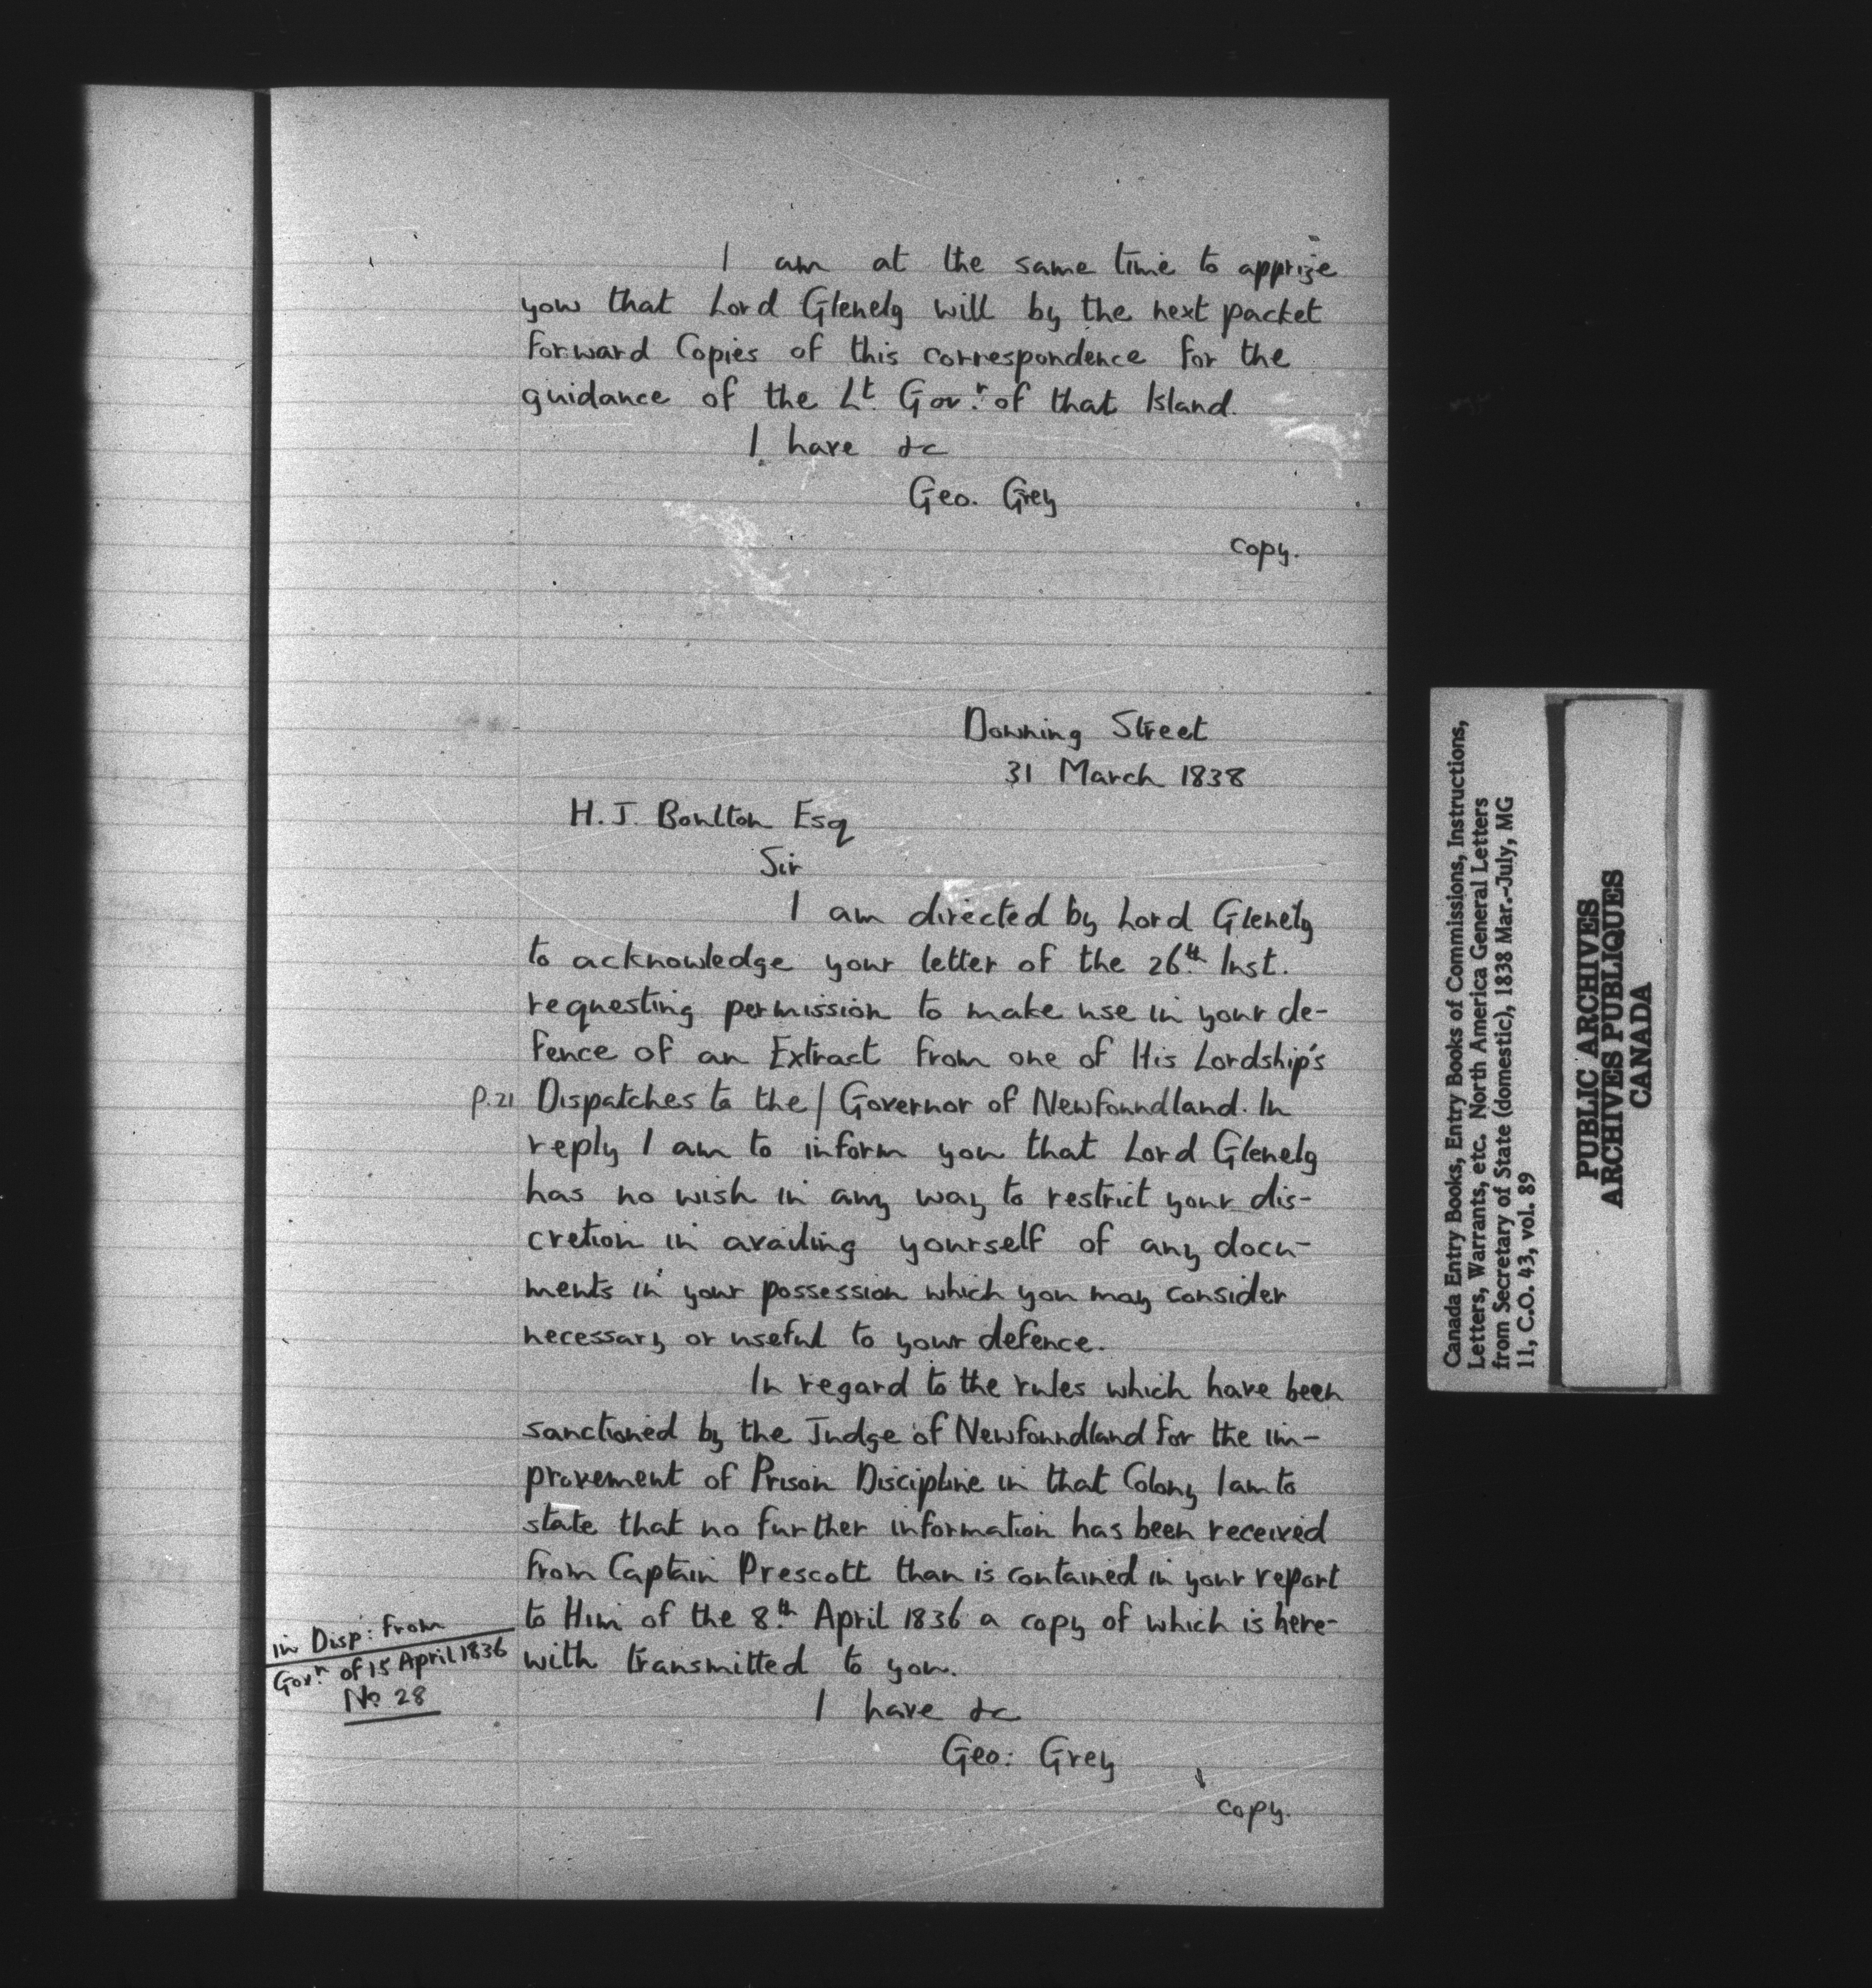 I am at the same time to apprize
you that Lord Glenelg will by the next packet
forward Copies of this correspondence for the
guidance of the Lt. Govr. of that Island.
I have &c
Geo. Grey
copy.
Downing Street
31 March 1838
H. J. Boulton Esq
Sir
I am directed by Lord Glenelg
to acknowledge your letter of the 26th. Inst.
requesting permission to make use in your de-
fence of an Extract from one of His Lordship's
p.21 Dispatches to the / Governor of Newfoundland. In
reply I am to inform you that Lord Glenelg
has no wish in any way to restrict your dis-
cretion in availing yourself of any docu-
ments in your possession which you may consider
necessary or useful to your defence.
In regard to the rules which have been
sanctioned by the Judge of Newfoundland for the im-
provement of Prison Discipline in that Colony I am to
state that no further information has been received
from Captain Prescott than is contained in your report
to Him of the 8th. April 1836 a copy of which is here-
with transmitted to you.
in Disp: from
Govr. of 15 April 1836
No 28
I have &c
Geo: Grey
copy.
Canada Entry Books, Entry Books of Commissions, Instructions,
Letters, Warrants, etc. North America General Letters
from Secretary of State (domestic), 1838 Mar.-July, MG
11, C.O. 43, vol. 89
PUBLIC ARCHIVES
ARCHIVES PUBLIQUES
CANADA